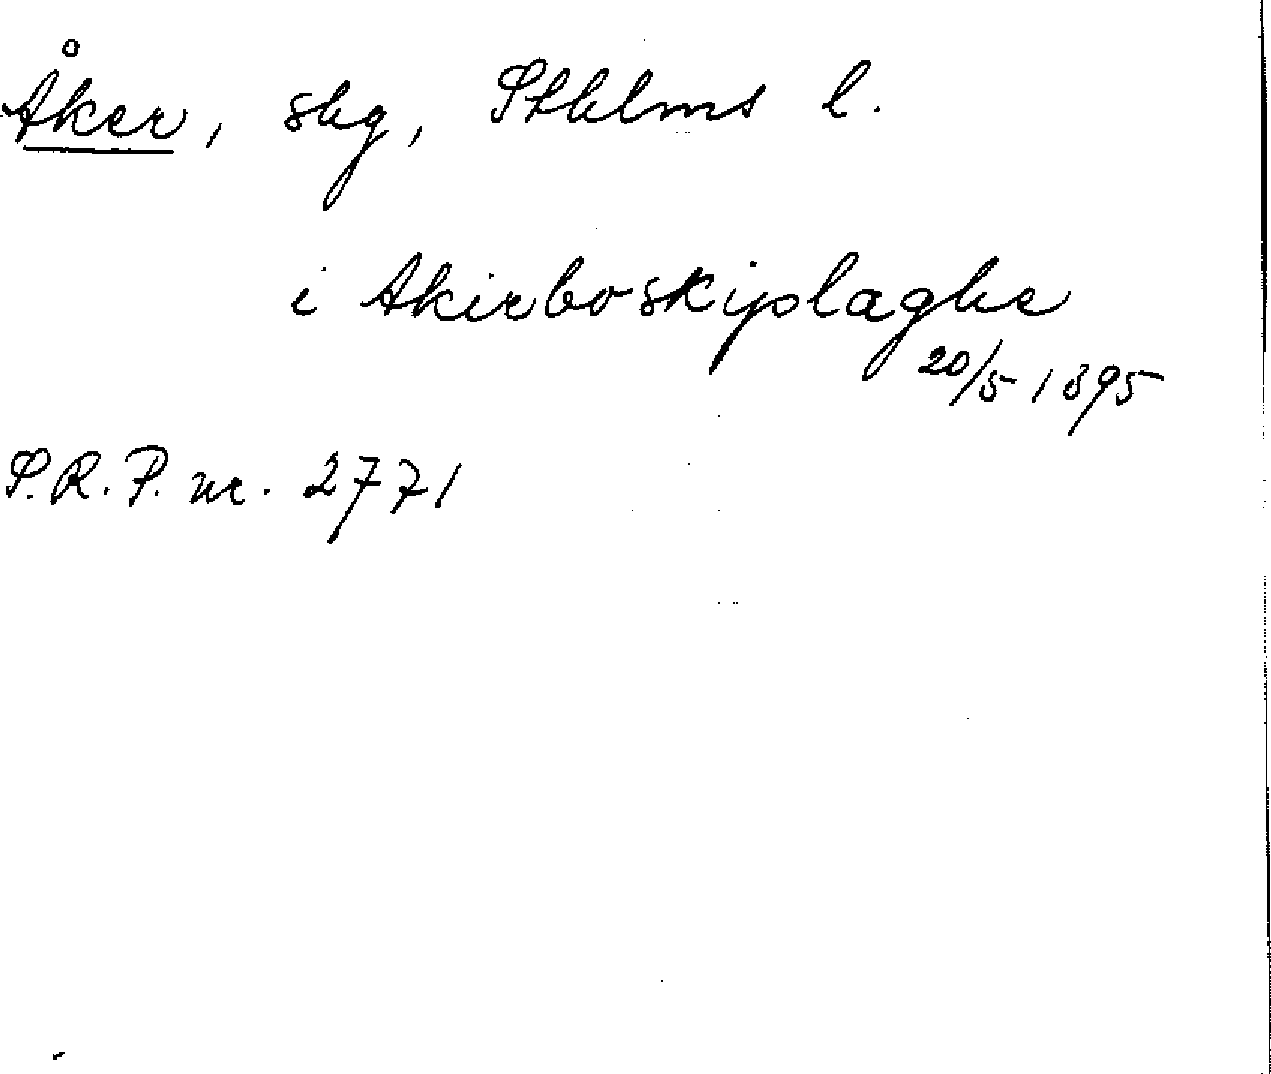 Åker, skg, Sthlms l.
i Akirboskiplaghe
20/5 1395
S.R.P. nr. 2771